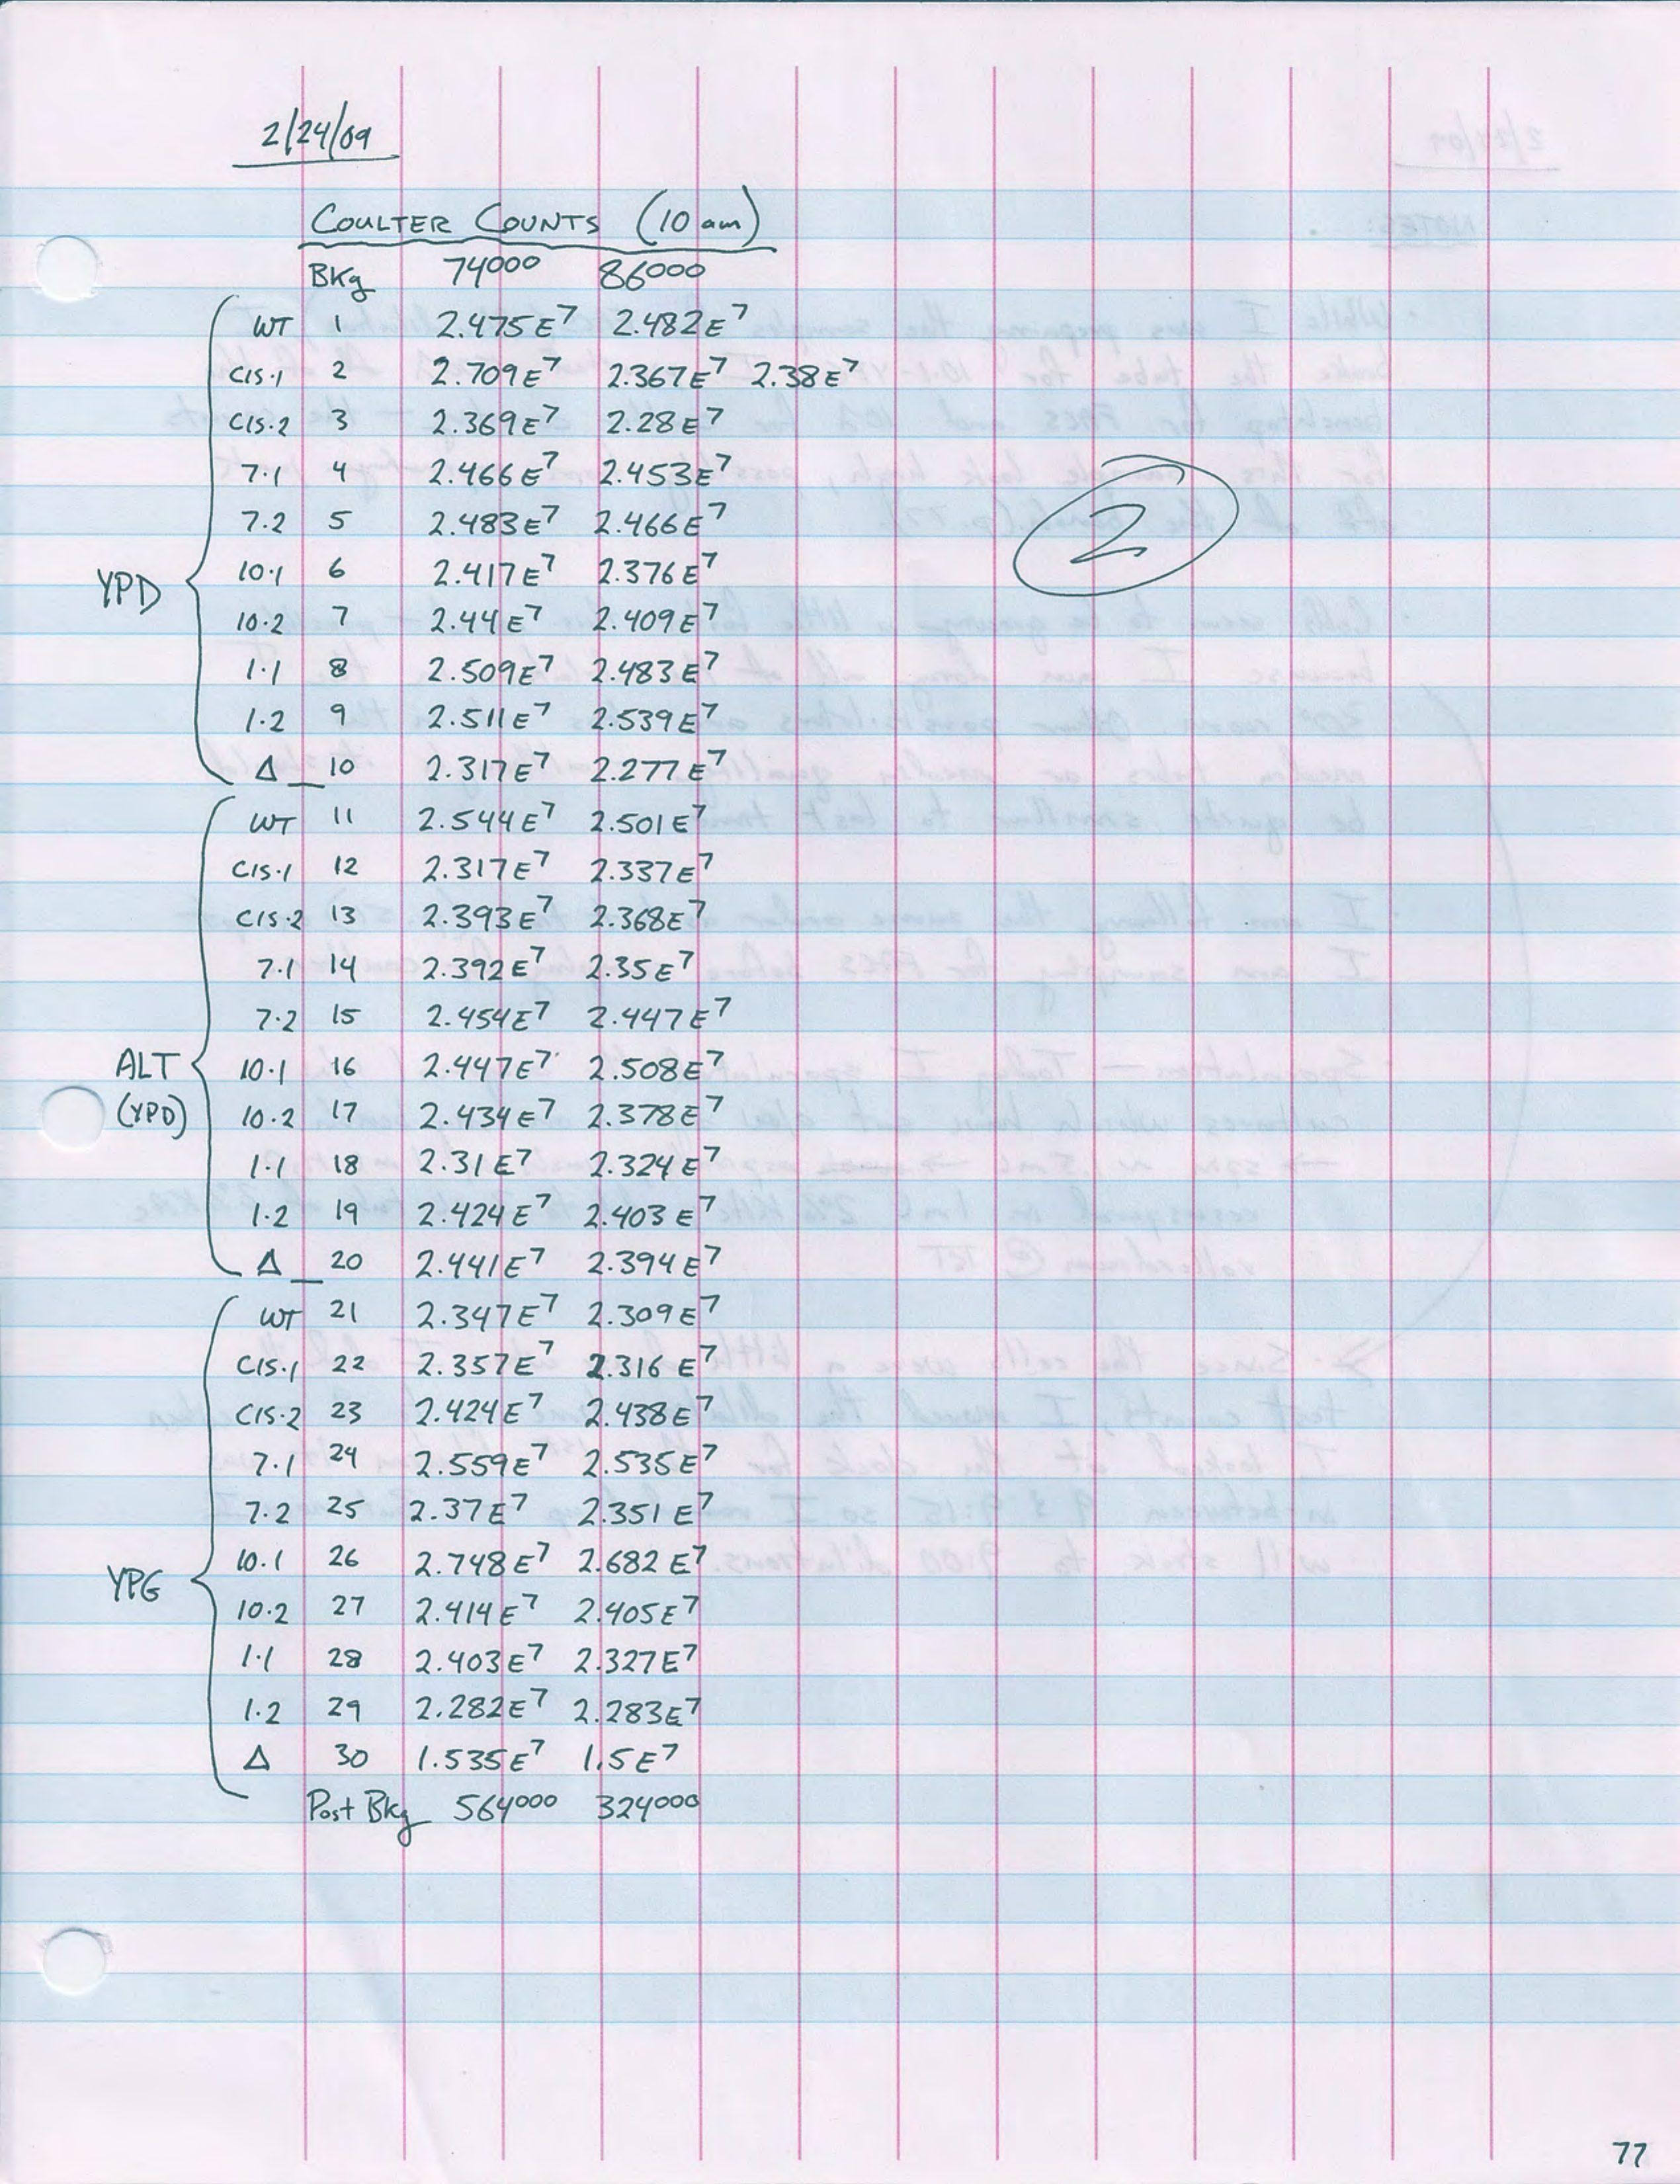 2/24/09
COULTER COUNTS (10 am)
Bkg 74000 86000
WT 1 2.475E7 2.482E7
CIS.1 2 2.709E7 2.367E7 2.38E7
CIS.2 3 2.369E7 2.28E7
7.1 4 2.466E7 2.453E7
7.2 5 2.483E7 2.466E7
2
YPD 10.1 6 2.417E7 2.376E7
10.2 7 2.44E7 2.409E7
1.1 8 2.509E7 2.483E7
1.2 9 2.511E7 2.539E7
Δ 10 2.317E7 2.277E7
WT 11 2.544E7 2.501E7
CIS.1 12 2.317E7 2.337E7
CIS.2 13 2.393E7 2.368E7
7.1 14 2.392E7 2.35E7
7.2 15 2.454E7 2.447E7
ALT 10.1 16 2.447E7 2.508E7
(YPD) 10.2 17 2.434E7 2.378E7
1.1 18 2.31E7 2.324E7
1.2 19 2.424E7 2.403E7
Δ 20 2.441E7 2.394E7
WT 21 2.347E7 2.309E7
CIS.1 22 2.357E7 2.316E7
CIS.2 23 2.424E7 2.438E7
7.1 24 2.559E7 2.535E7
7.2 25 2.37E7 2.351E7
YPG 10.1 26 2.748E7 2.682E7
10.2 27 2.414E7 2.405E7
1.1 28 2.403E7 2.327E7
1.2 29 2.282E7 2.283E7
Δ 30 1.535E7 1.5E7
Post Bkg 564000 324000
77